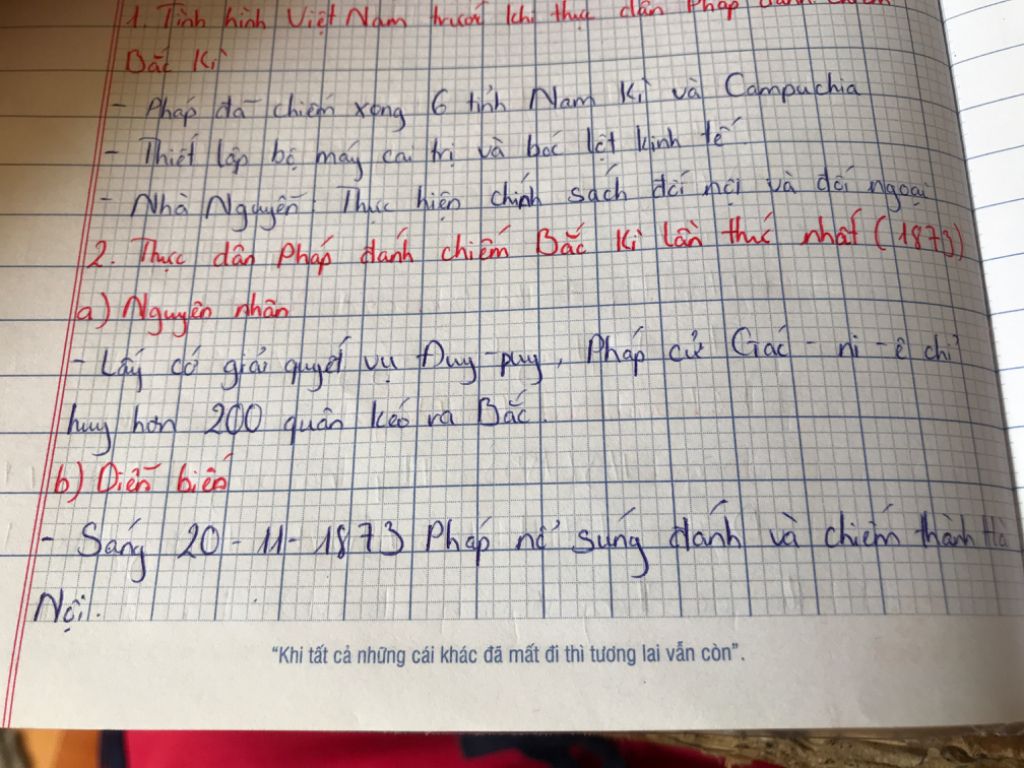 1. Tình hình Việt Nam trước khi thực dân Pháp đánh chiếm
Bắc Kì
- Pháp đã chiếm xong 6 tỉnh Nam Kì và Campuchia
- Thiết lập bộ máy cai trị và bóc lột kinh tế
- Nhà Nguyễn Thực hiện chính sách đối nội và đối ngoại
2. Thực dân Pháp đánh chiếm Bắc Kì lần thứ nhất (1873)
a) Nguyên nhân
- Lấy cớ giải quyết vụ Đuy-puy, Pháp cử Gác-ni-ê chỉ
huy hơn 200 quân kéo ra Bắc.
b) Diễn biến
- Sáng 20-11-1873 Pháp nổ súng đánh và chiếm thành Hà
Nội.
"Khi tất cả những cái khác đã mất đi thì tương lai vẫn còn".